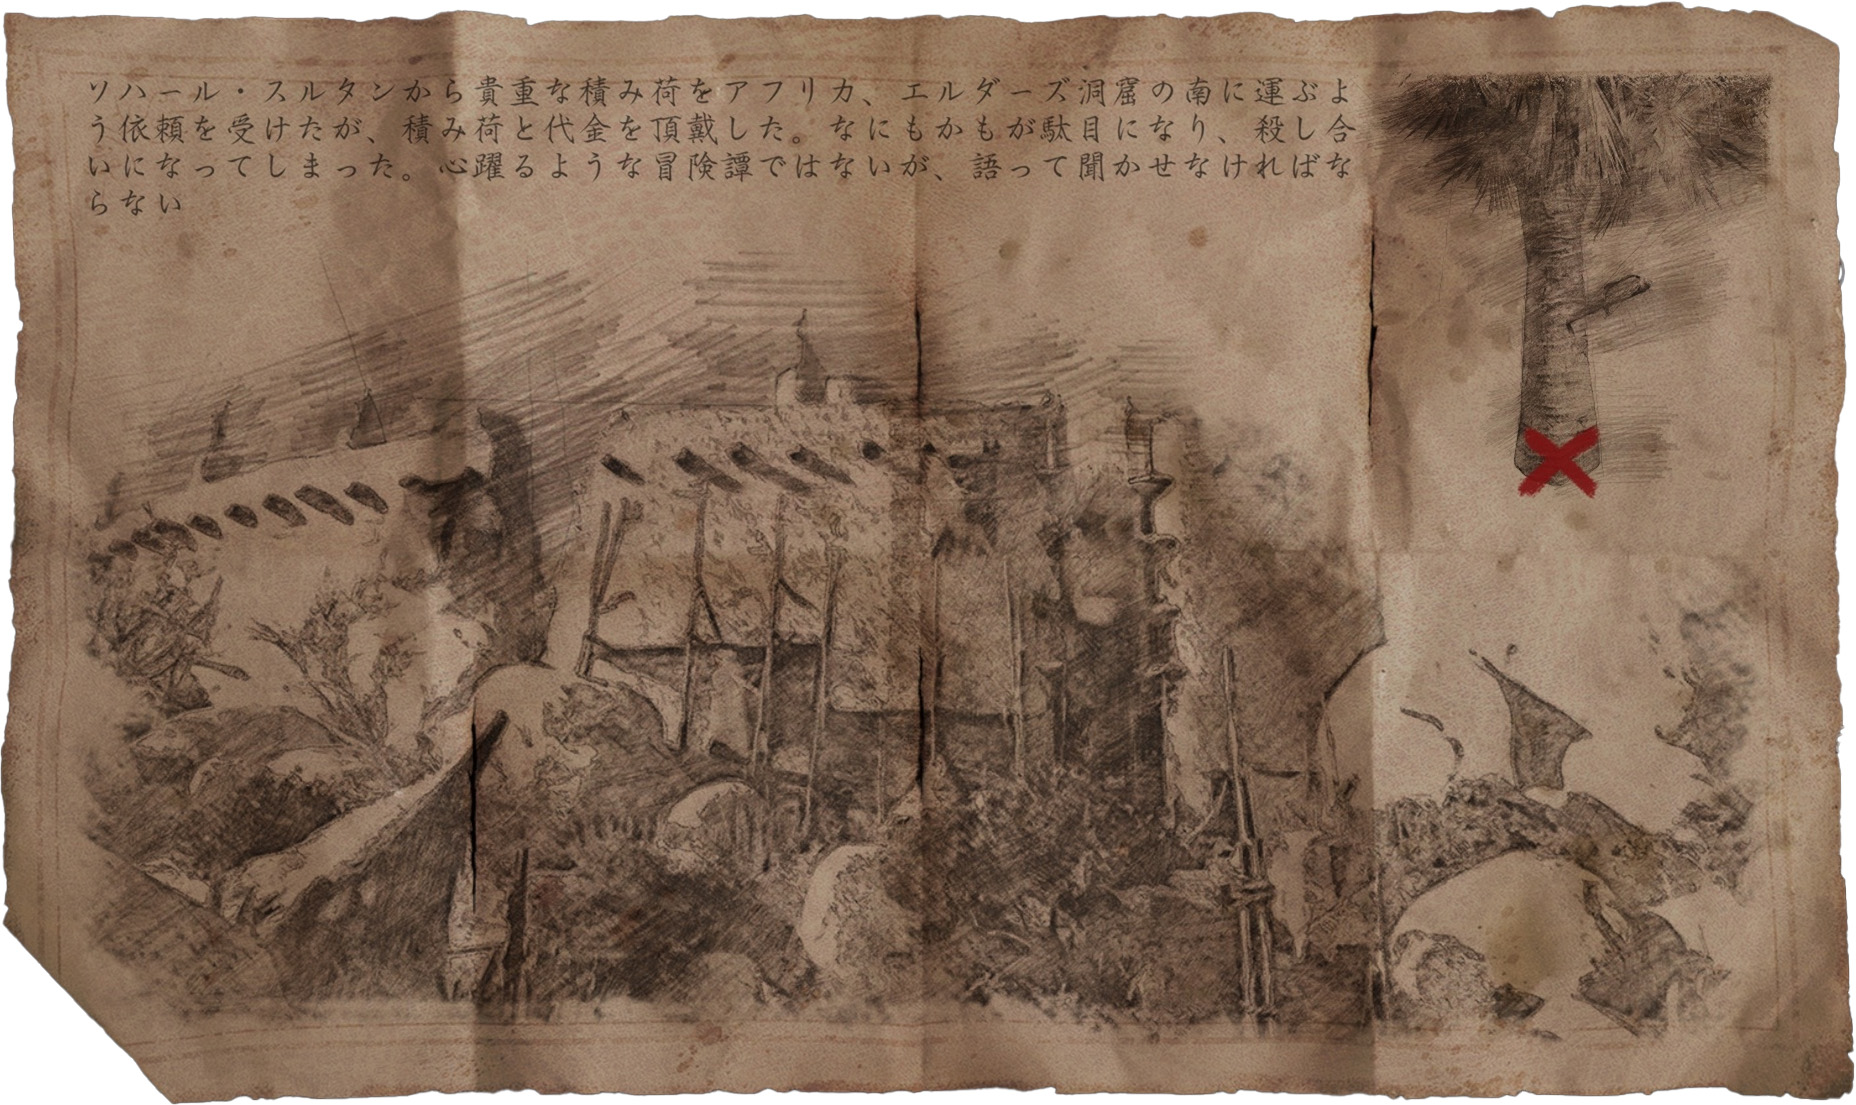 ソハール・スルタンから貴重な積み荷をアフリカ、エルダーズ洞窟の南に運ぶよ
う依頼を受けたが、積み荷と代金を頂戴した。なにもかもが駄目になり、殺し合
いになってしまった。心躍るような冒険譚ではないが、語って聞かせなければな
らない